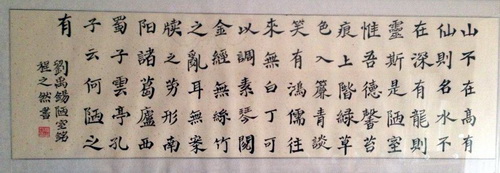 山不在高有
仙則名水不
在深有龍則
靈斯是陋室
惟吾德馨苔
痕上階綠草
色入簾青談
笑有鴻儒往
來無白丁可
以調素琴閱
金經無絲竹
之亂耳無案
牘之勞形南
陽諸葛廬西
蜀子雲亭孔
子云何陋之
有
劉禹錫陋室銘
程之然書